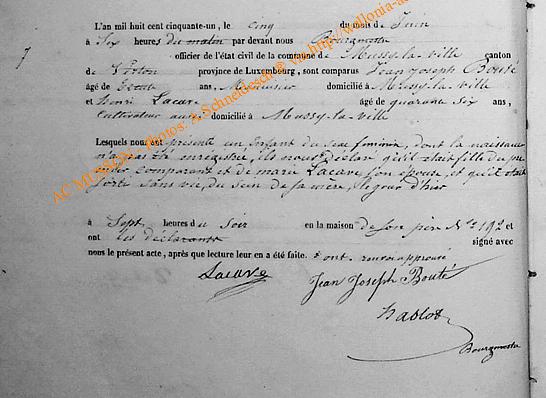 7
L'an mil huit cent cinquante-un, le cinq du mois de Juin
à Six heures du matin par devant nous Bourgmestre
officier de l'état civil de la commune de Mussy-la-Ville canton
de Virton province de Luxembourg, sont comparus Jean Joseph Bouté
âgé de trente ans, Menuisier domicilié à Mussy-la-Ville
et henri Lacave âgé de quarante Six ans,
cultivateur aussi domicilié à Mussy-la-Ville
Lesquels nous ont présenté un Enfant du sexe feminin, dont la naissance
n'a pas été enregistrée, ils nous déclaré qu'il était fille du pre
mier comparant et de marie Lacave son épouse, et qu'il était
sorti sans vie, du sein de sa mère, le jour d'hier
à Sept heures du Soir en la maison de son père N° 192 et
ont les déclarants signé avec
nous le présent acte, après que lecture leur en a été faite. ont renvoi approuvé
Lacave
Jean Joseph Bouté
haslot
Bourgmestre
AC MUSSON - Photos: A. Schneidesch © via http://wallonia-a